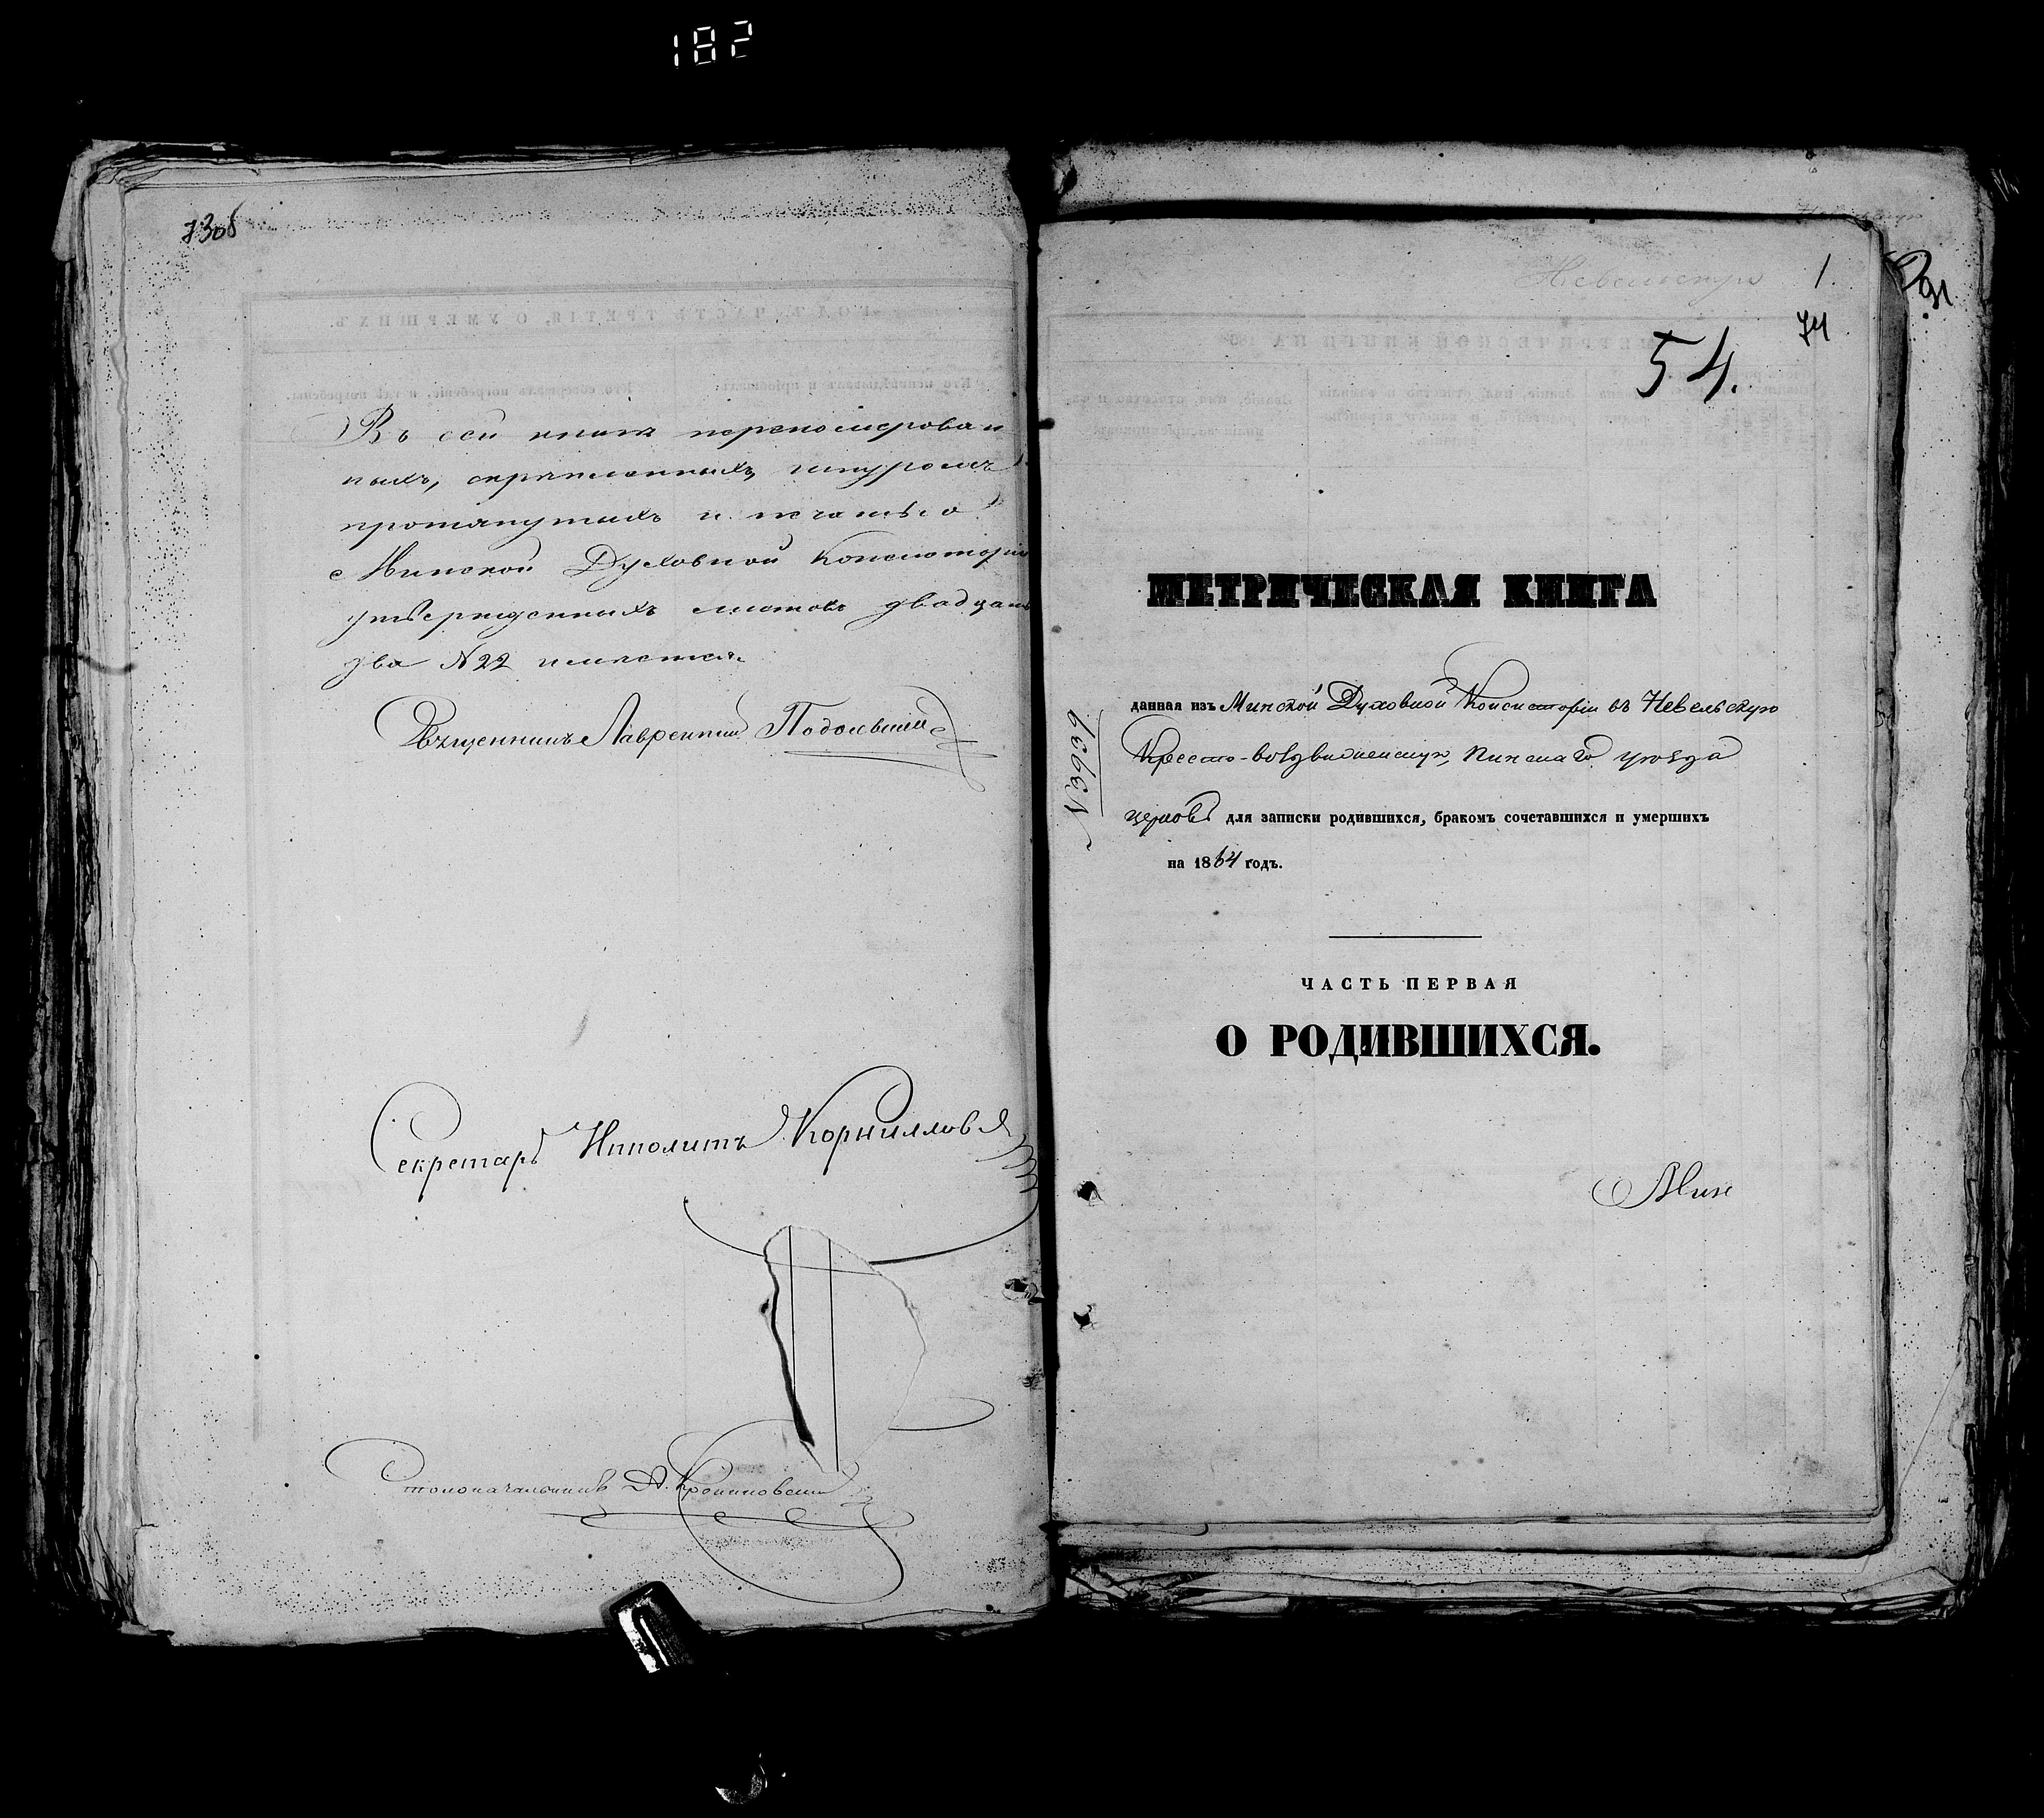 182
73об
Въ сей книгѣ перенумерован
ныхъ, скрѣпленныхъ, шнуромъ
протянутыхъ и печатью
Минской Духовной Консисторіи
утвержденныхъ листовъ двадцать
два №22 имѣется.
Священникъ Лаврентій
Секретарь Ипполитъ Корниллов
Столоначальникъ А.
Невельскую
1
74
54.
МЕТРИЧЕСКАЯ КНИГА
данная изъ Минской Духовной Консисторіи въ Невельскую
Кресто-воздвиженскую, Пинскаго уѣзда
церковь для записки родившихся, бракомъ сочетавшихся и умершихъ
на 1864 годъ.
ЧАСТЬ ПЕРВАЯ
О РОДИВШИХСЯ.
Мин